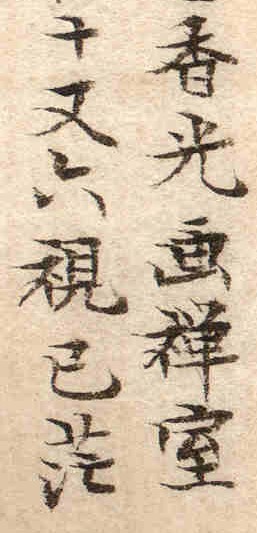 香光画禅室
十又六視已茫